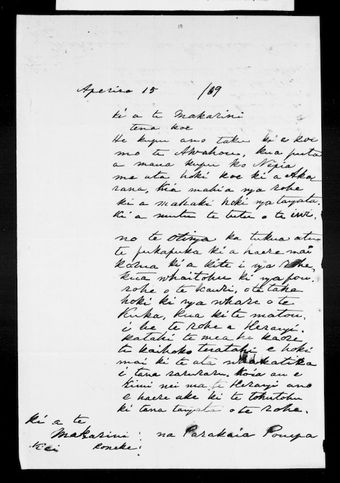 Aperira 15 /69
ki a te Makarini
tena koe
He kupu ano taku ki a koe
mo te Awahou, kua puta
a mana kupu ko Nepia
ma ata hoki koe ki a Aka
rana, kia mahia nga rohe
ki a marake hoki nga tangata
ki a mutu te tutu o te iwi.
no te otinga ka tukua atu
te pukapuka ki a haere mai
korua ki a kite i nga Rohe,
kua whaitohu ki nga pou
rohe o te Kauri, o te taka
hoki ki nga whare o te
Kuka, kua kite matou,
i he te rohe a Herangi.
katahi te mea he kaore
te kaihoko teratahi e hoki
mai ki te ata whakatika
i tana raruraru, koia au e
kimi nei ma te Herangi ano
e haere ake ki te tohutohu
ki tana tangata o te rohe.
ki a te
Makarini: na Parakaia Pouepa
kei Poneke: